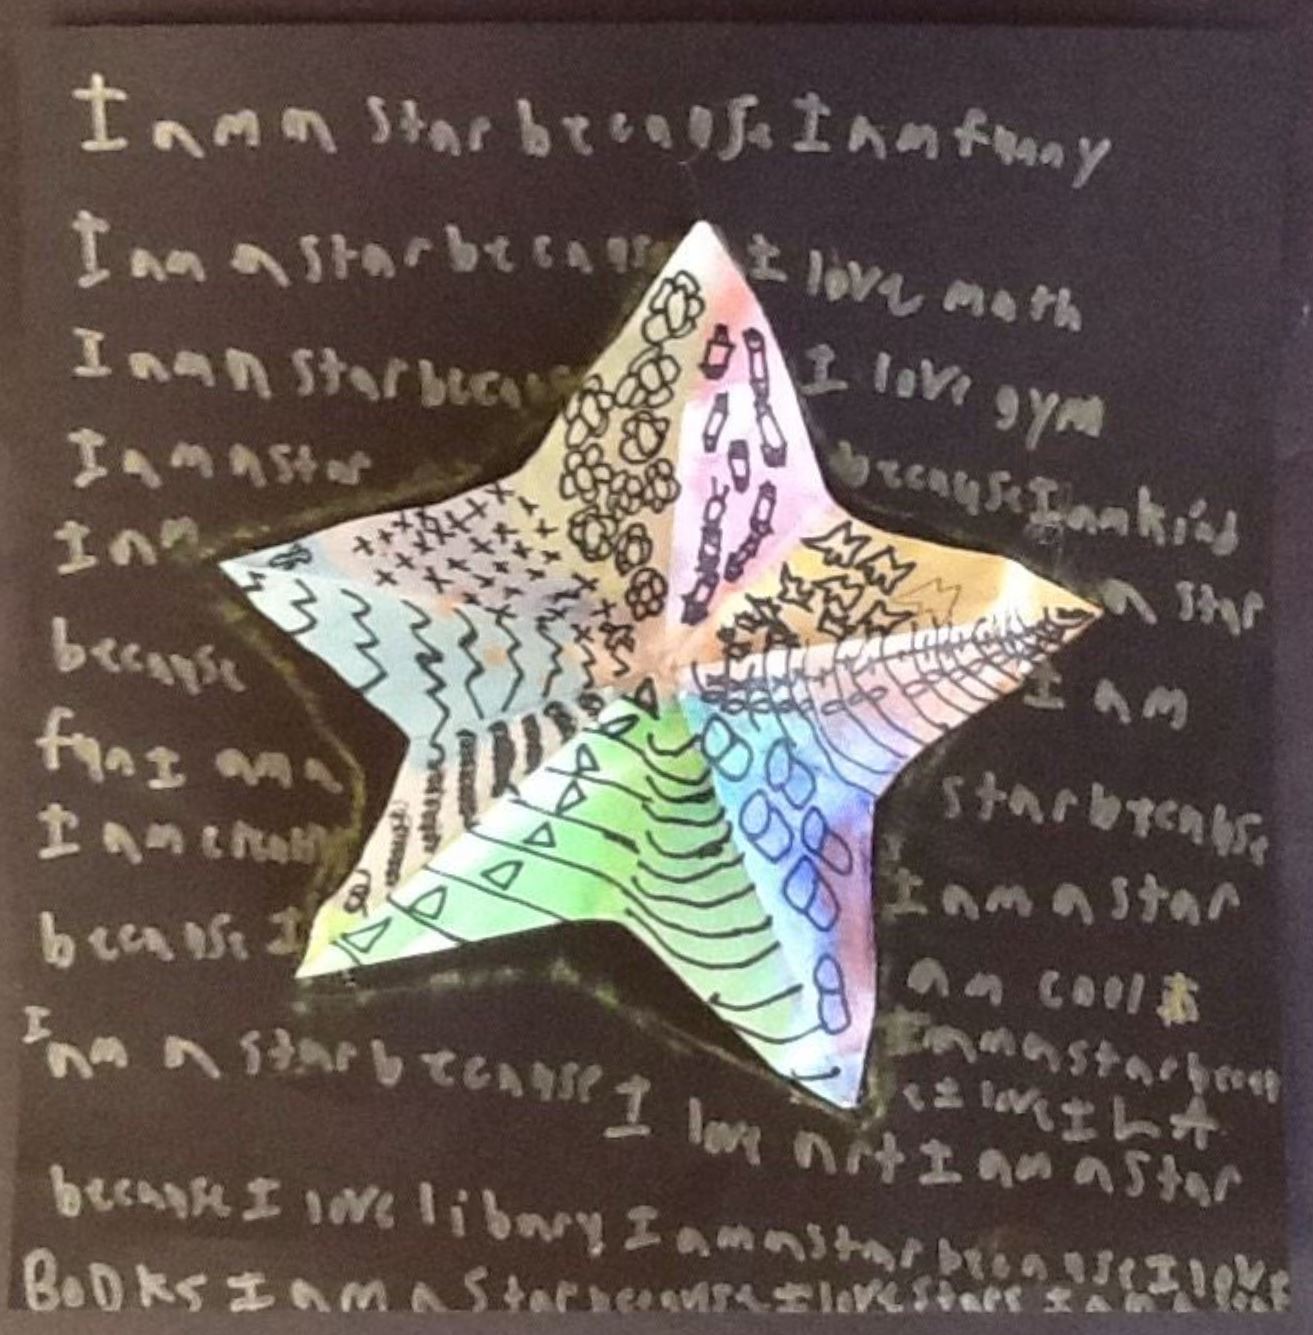 I am a star because I am funny
I am a star because I love math
I am a star because I love gym
I am a star because I am kind
I am a star
because I am
fun I am a star because
I am creative I am a star
because I am cool
I am a star because I love I L A
I am a star because I love art I am a star
because I love library I am a star because I love
BOOKS I am a star because I love stars I am a